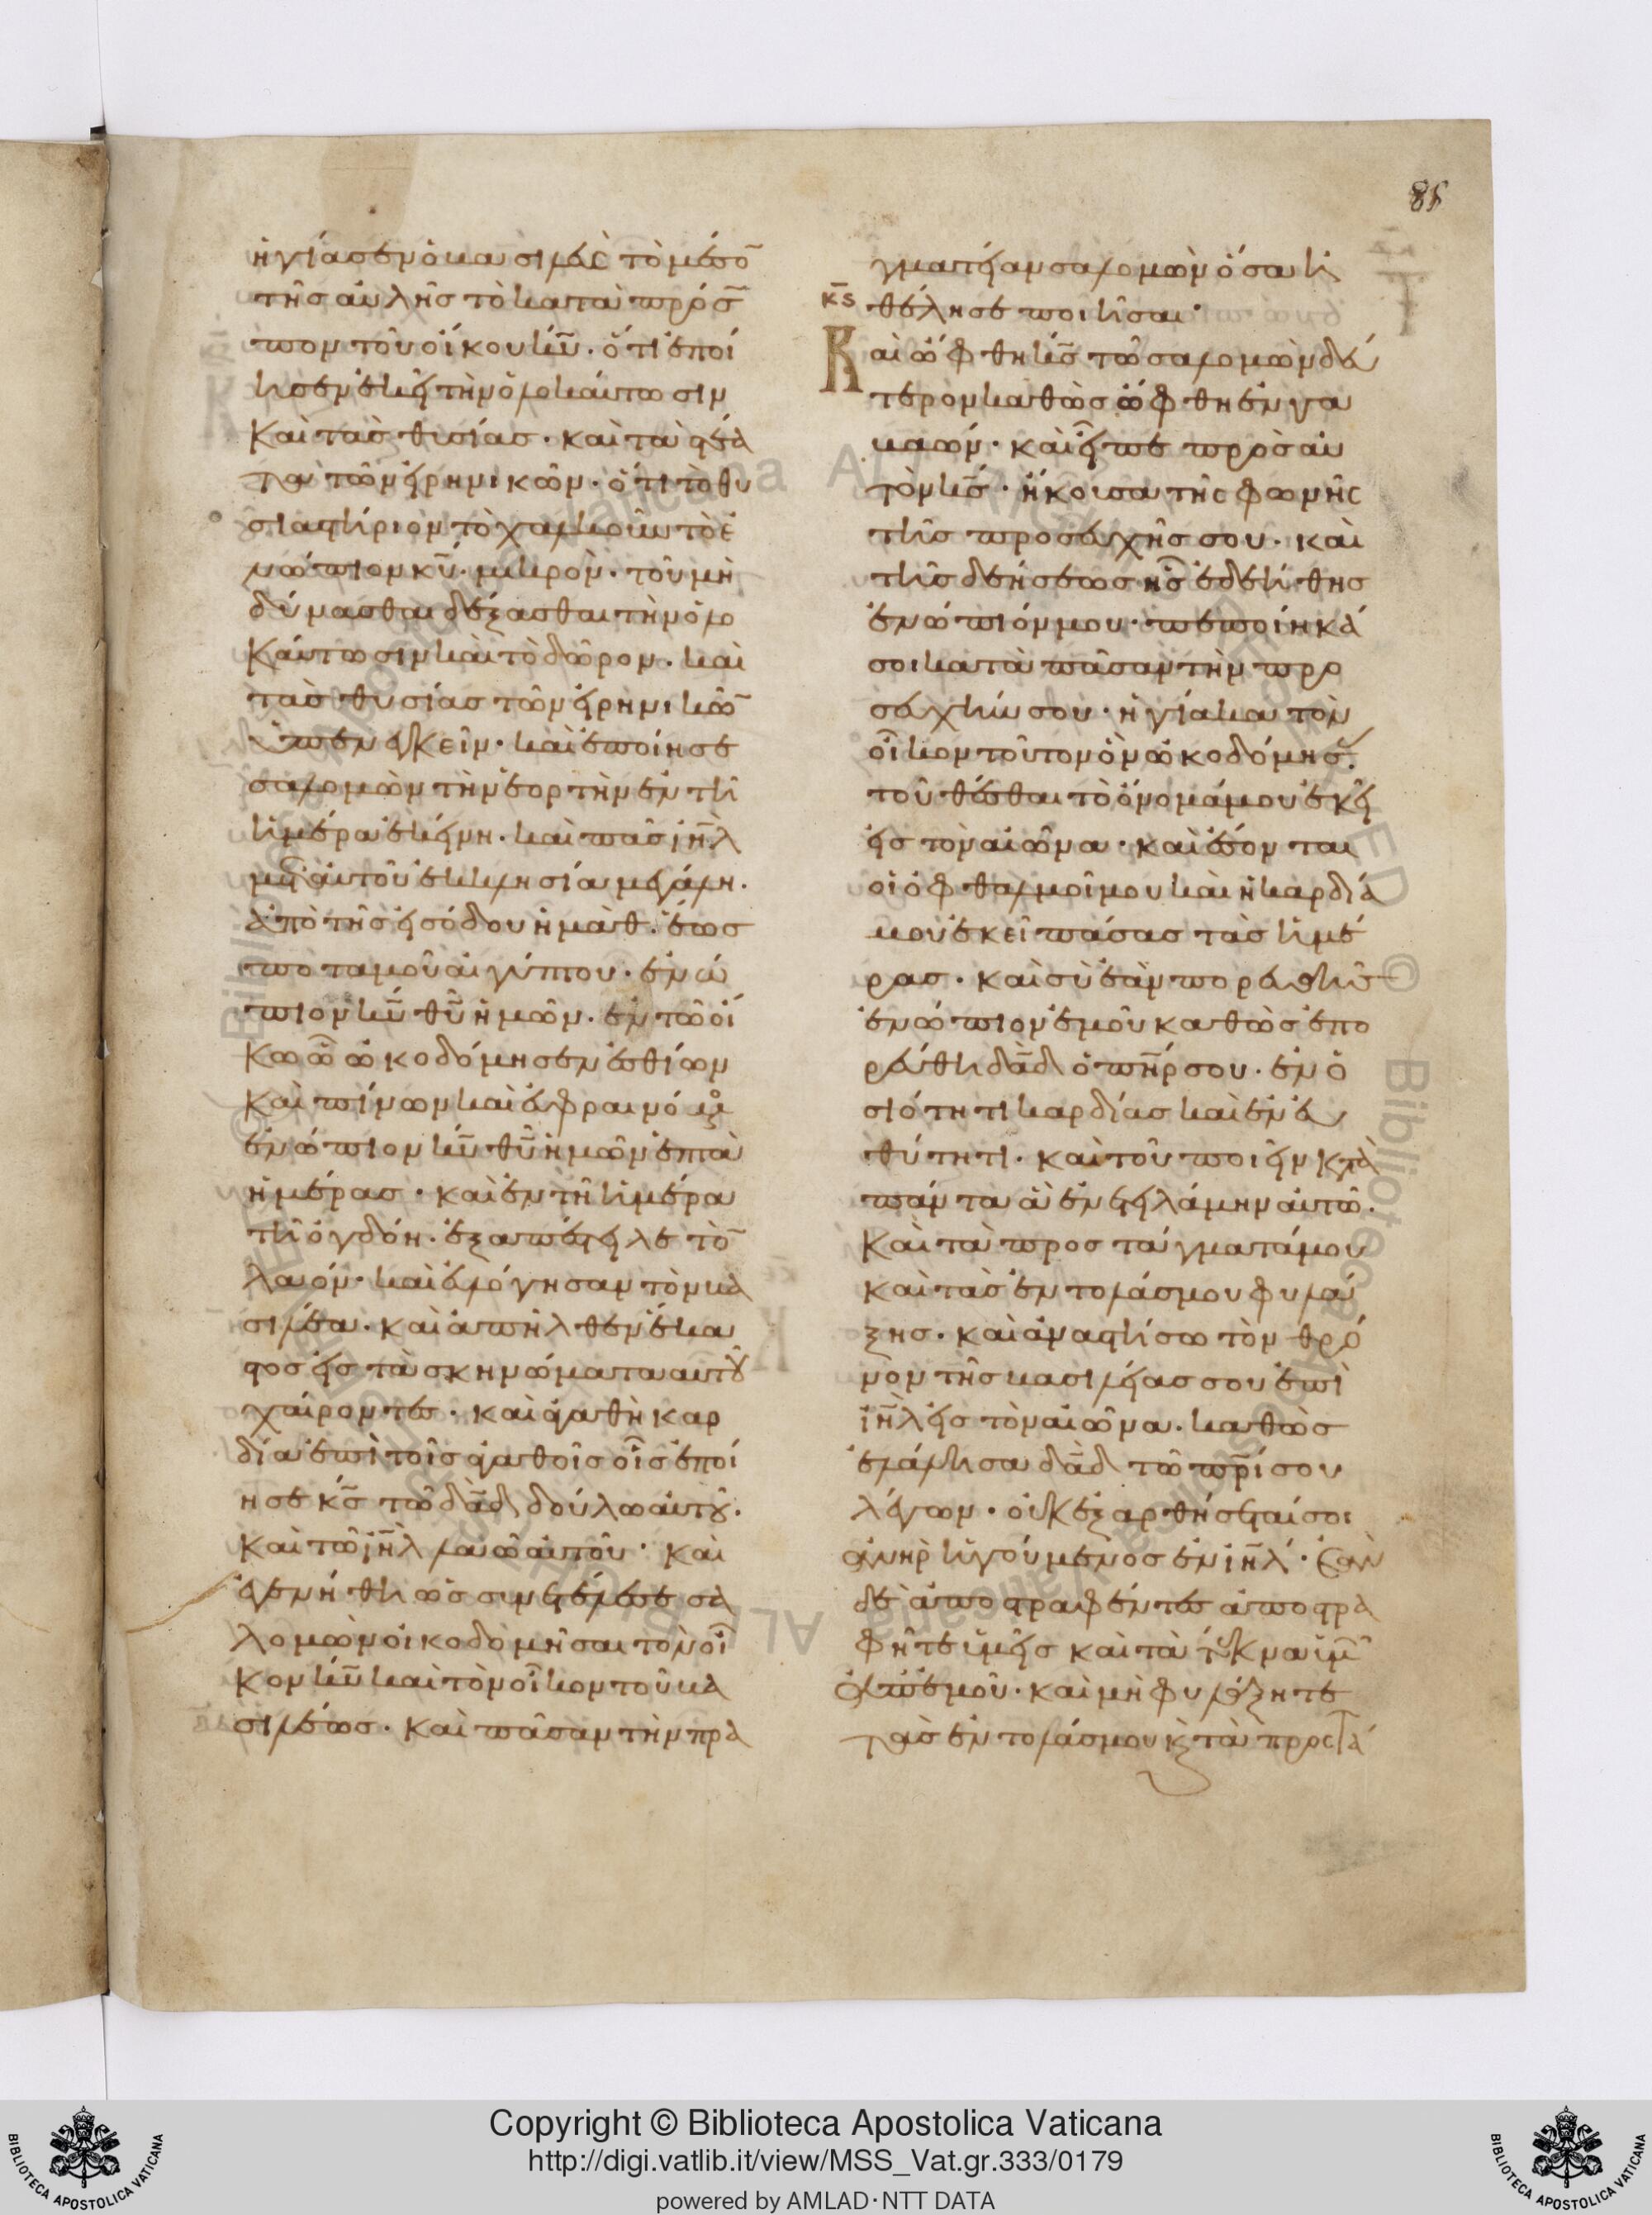 85
ἡγίασεν ὁ βασιλεὺς τὸ μέσο̅
τῆς αὐλῆς τὸ κατὰ πρόσ̅
ωπον τοῦ οἴκου κ̅υ̅· ὅτι ἐποί
ησεν ἐκεῖ τὴν ὁλοκαύτωσιν
Καὶ τὰς θυσίας· καὶ τὰ στέα
τα τῶν εἰρηνικῶν· ὅτι τὸ θυ
σιαστήριον τὸ χαλκοῦν τὸ ἐ
νώπιον κ̅υ̅· μικρὸν· τοῦ μὴ
δύνασθαι δέξασθαι τὴν ὁλο
Καύτωσιν καὶ τὸ δῶρον· καὶ
τὰς θυσίας τῶν εἰρηνικῶ̅
ὑπενεγκεῖν· καὶ ἐποίησε
σαλομὼν τὴν ἑορτὴν ἐν τῆ
ἡμέρα ἐκείνη· καὶ πᾶς ι̅η̅λ̅
μετ' αὐτοῦ ἐκκλησία μεγάλη·
ἀπὸ τῆς εἰσόδου ἡμὰθ· ἕως
ποταμοῦ αἰγύπτου· ἐνώ
πιον κ̅υ̅ θ̅υ̅ ἡμῶν· ἐν τῶ οἴ
Κω ὧ ὠκοδόμησεν ἐσθίων
Καὶ πίνων καὶ εὐφραινόμενος
ἐνώπιον κ̅υ̅ θ̅υ̅ ἡμῶν ἑπτὰ
ἡμέρας· καὶ ἐν τῆ ἡμέρα
τῆ ὀγδόη· ἐξαπέστειλε τὸ̅
λαόν· καὶ εὐλόγησαν τὸν βα
σιλέα· καὶ ἀπῆλθεν ἕκα
στος εἰς τὰ σκηνώματα αὐτοῦ
χαίροντες· καὶ ἀγαθὴ καρ
δία ἐπὶ τοῖς ἀγαθοῖς οἷς ἐποί
ησε κ̅ς̅ τῶ δ̅α̅δ̅ δούλω αὐτοῦ·
Καὶ τῶ ι̅η̅λ̅ λαῶ αὐτοῦ· καὶ
ἐγενήθη ὡς συνετέλεσε σα
λομὼν οἰκοδομῆσαι τὸν οἶ
Κον κ̅υ̅ καὶ τὸν οἶκον τοῦ βα
σιλέως· καὶ πᾶσαν τὴν πρα
γματείαν σαλομὼν ὅσα ἠ
κ̅ς̅
θέλησε ποιῆσαι·
Καὶ ὤφθη κ̅ς̅ τῶ σαλομὼν δεύ
τερον καθὼς ὤφθη ἐν γα
βαών· καὶ εἶπε πρὸς αὐ
τὸν κ̅ς̅· ἤκουσα τῆς φωνῆς
τῆς προσευχῆς σου· καὶ
τῆς δεήσεως ἧς ἐδεήθης
ἐνώπιόν μου· πεποίηκά
σοι κατὰ πᾶσαν τὴν προ
σευχήν σου· ἡγίακα τὸν
οἶκον τοῦτον ὃν ὠκοδόμησας·
τοῦ θέσθαι τὸ ὄνομά μου ἐκεῖ
εἰς τὸν αἰῶνα· καὶ ἔσονται
οἱ ὀφθαλμοί μου καὶ ἡ καρδία
μου ἐκεῖ πάσας τὰς ἡμέ
ρας· καὶ σὺ ἐὰν πορευθῆς
ἐνώπιον ἐμοῦ καθὼς ἐπο
ρεύθη δ̅α̅δ̅ ὁ π̅η̅ρ̅ σου· ἐν ὁ
σιότητι καρδίας καὶ ἐν εὐ
θύτητι· καὶ τοῦ ποιεῖν κατὰ
πάντα ἃ ἐνετειλάμην αὐτῶ·
Καὶ τὰ προστάγματά μου
καὶ τὰς ἐντολάς μου φυλά
ξης· καὶ ἀναστήσω τὸν θρό
νον τῆς βασιλείας σου ἐπὶ
ι̅η̅λ̅ εἰς τὸν αἰῶνα· καθὼς
ἐλάλησα δ̅α̅δ̅ τῶ π̅ρ̅ι̅ σου
λέγων· οὐκ ἐξαρθήσεταί σοι
ἀνὴρ ἡγούμενος ἐν ι̅η̅λ̅· Ἐὰν
δὲ ἀποστραφέντες ἀποστρα
φῆτε ὑμεῖς καὶ τὰ τέκνα ὑμῶν
ἀπ' ἐμοῦ· καὶ μὴ φυλάξητε
τὰς ἐντολάς μου κ̀ τὰ προστά
Copyright © Biblioteca Apostolica Vaticana
http://digi.vatlib.it/view/MSS_Vat.gr.333/0179
powered by AMLAD·NTT DATA
BIBLIOTECA APOSTOLICA VATICANA
BIBLIOTECA APOSTOLICA VATICANA